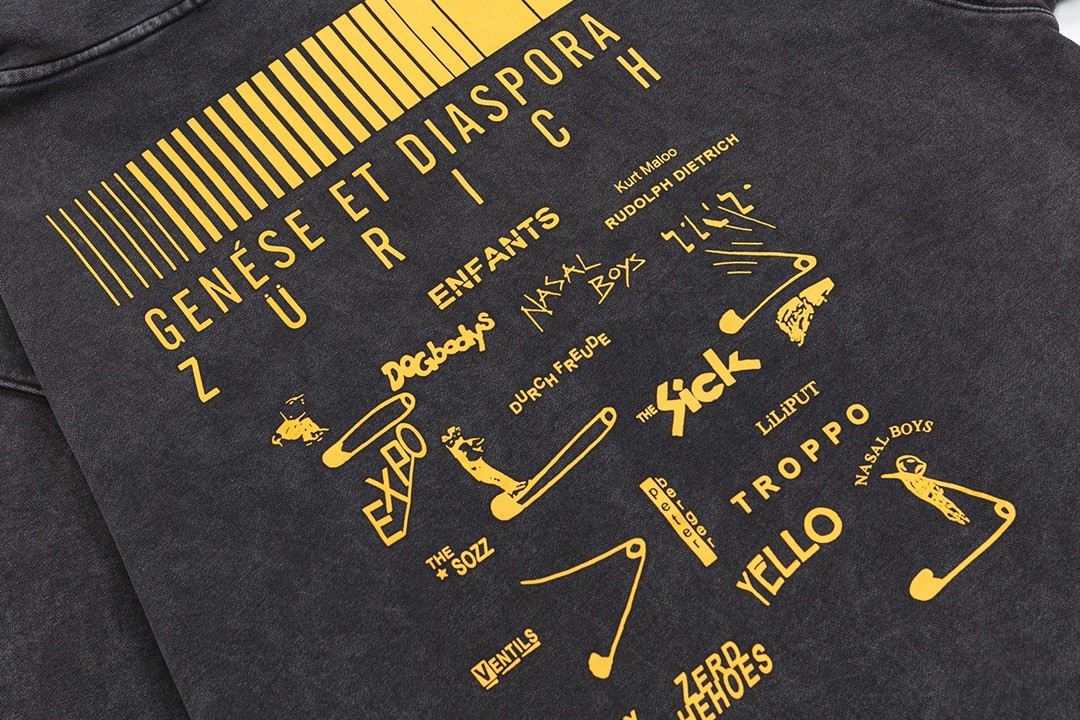 GENÉSE ET DIASPORA
ZÜRICH
Kurt Maloo
RUDOLPH DIETRICH
ENFANTS
NASAL BOYS
DOGbodys
DURCH FREUDE
THE Sick
LiLiPUT
EXPO
TROPPO
NASAL BOYS
peter berger
YELLO
THE SOZZ
VENTILS
ZERD
HEHOES